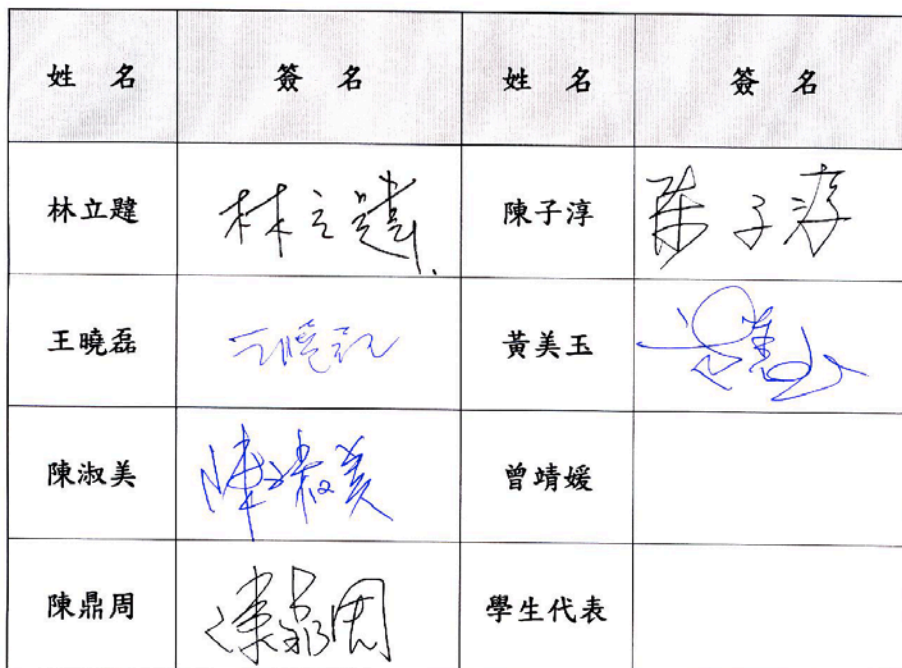 姓 名 簽 名 姓 名 簽 名
林立韙 林立韙 陳子淳 陳子淳
王曉磊 黃美玉
陳淑美 陳淑美 曾靖媛
陳鼎周 陳鼎周 學生代表